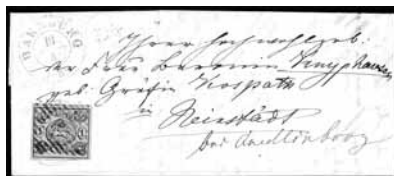 HARZBURG
Ihrer Hochwohlgeb.
der Frau Baronin Knyphausen
geb. Gräfin Kospoth
in
Neinstädt
bei Quedlinburg